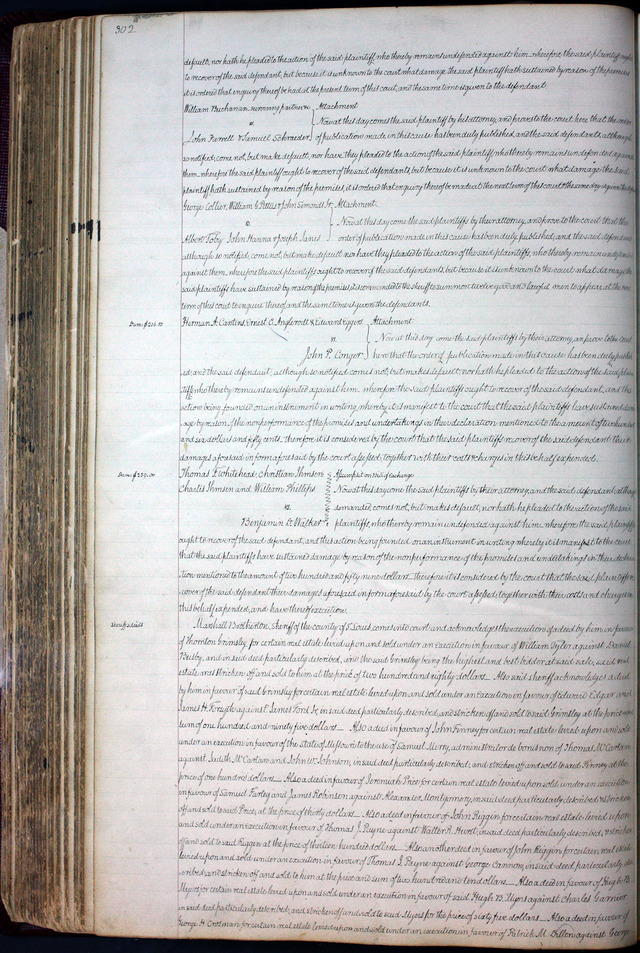 302
default, nor hath he pleaded to the action of the said plaintiff, who thereby remains undefended against him wherefore the said plaintiff ought
to recover of the said defendant, but because it is unknown to the court what damage the said plaintiff hath sustained by reason of the premises
it is ordered that enquiry thereof be had at the present term of this court, and the same time is given to the defendant.
William Buchanan surviving partner &c Attachment
vs Now at this day comes the said plaintiff by his attorney, and proves to the court here that the order
John Farrell & Samuel Schrader of publication made in this cause has been duly published, and the said defendants, although
so notified, come not, but make default, nor have they pleaded to the action of the said plaintiff who thereby remains undefended against
them, wherefore the said plaintiff ought to recover of the said defendants, but because it is unknown to the court what damage the said
plaintiff hath sustained by reason of the premises, it is ordered that enquiry thereof be made at the next term of this court & the same day is given the
George Collier, William G Pettus & John Simonds Jr Attachment
vs Now at this day come the said plaintiffs by their attorney, and prove to the court that the
Albert Toby John Hanna & Joseph James order of publication made in this cause has been duly published, and the said defendants
although so notified, come not, but make default nor have they pleaded to the action of the said plaintiffs, who thereby remain undefended
against them, wherefore the said plaintiffs ought to recover of the said defendants, but because it is unknown to the court what damage the
said plaintiffs have sustained by reason of the premises it is commanded the sheriff to summon twelve good and lawful men to appear at the next
term of this court to enquire thereof, and the same time is given the defendants.
Dam: $206.50
Herman A. Ernest C. Angelrodt & Edward Eggers Attachment
vs Now at this day come the said plaintiffs by their attorney, and prove to the court
John P. Conger here that the order of publication made in this cause has been duly publish
ed, and the said defendant, although so notified comes not, but makes default nor hath he pleaded to the action of the said plain
tiffs who thereby remains undefended against him. wherefore the said plaintiffs ought to recover of the said defendant, and this
action being founded on an instrument in writing, whereby it is manifest to the court that the said plaintiffs have sustained dam
age by reason of the nonperformance of the promises and undertakings in the declaration mentioned to the amount of two hundred
and six dollars and fifty cents, therefore it is considered by the court that the said plaintiffs recover of the said defendant their
damages aforesaid in form aforesaid by the court assessed, together with their costs & charges in this behalf expended.
Dam: $259.00
Thomas Whitehead, Christian Ihmsen Assumpsit on bill of exchange
Charles Ihmsen and William Phillips Now at this day come the said plaintiffs by their attorney, and the said defendant, although
vs demanded comes not, but makes default, nor hath he pleaded to the action of the said
Benjamin L Walker plaintiffs, who thereby remain undefended against him. wherefore the said plaintiffs
ought to recover of the said defendant, and this action being founded on an instrument in writing whereby it is manifest to the court
that the said plaintiffs have sustained damage by reason of the nonperformance of the promises and undertakings in their declara
tion mentioned to the amount of two hundred and fifty nine dollars. Therefore it is considered by the court that the said plaintiffs re
cover of the said defendant their damages aforesaid in form aforesaid by the court assessed, together with their costs and charges in
this behalf expended, and have thereof execution.
Sheriffs deeds
Marshall Brotherton, Sheriff of the county of St Louis comes into court and acknowledges the execution of a deed by him in favour
of Thornton Grimsley, for certain real estate levied upon and sold under an execution in favour of William Tyler against Daniel
Busby, and in said deed particularly described, and the said Grimsley being the highest and best bidder at said sale, said real
estate was stricken off and sold to him at the price of two hundred and eighty dollars. Also said sheriff acknowledges a deed
by him in favour of said Grimsley for certain real estate levied upon and sold under an execution in favour of Edward Edgar and
James H. Forsyth against James Ford Jr, in said deed particularly described, and stricken off and sold to said Grimsley at the price and
sum of one hundred and ninety five dollars_ Also a deed in favour of John Finney for certain real estate levied upon and sold
under an execution in favour of the state of Missouri to the use of Samuel Merry, administrator de bonis non of Thomas McCartan
against Judith McCartan and John W. Johnson, in said deed particularly described, and stricken off and sold to said Finney at the
price of one hundred dollars_ Also a deed in favour of Jeremiah Price for certain real estate levied upon & sold under an execution
in favour of Samuel Farley and James Robinson against Alexander Montgomery, in said deed particularly described, & stricken
off and sold to said Price, at the price of thirty dollars_ Also a deed in favour of John Riggin for certain real estate levied upon
and sold under an execution in favour of Thomas J. Payne against Walter R. Hurt in said deed particularly described, & stricken
off and sold to said Riggin at the price of thirteen hundred dollars. Also another deed in favour of John Riggin for certain real estate
levied upon and sold under an execution in favour of Thomas J. Payne against George Cannon, in said deed particularly de
scribed, and stricken off and sold to him at the price and sum of two hundred and ten dollars_ Also a deed in favour of Hugh B.
Myers for certain real estate levied upon and sold under an execution in favour of said Hugh B. Myers against Charles Garnier
in said deed particularly described, and stricken off and sold to said Myers for the price of sixty five dollars_ Also a deed in favour of
George H. Crosman for certain real estate levied upon and sold under an execution in favour of Patrick M. Dillon against George